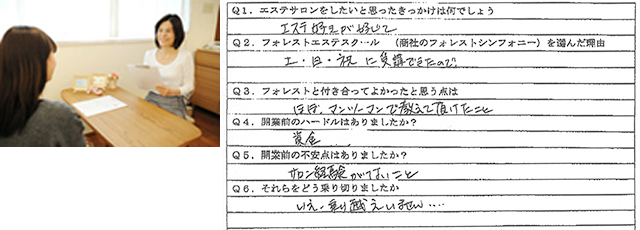 Q1．エステサロンをしたいと思ったきっかけは何でしょう
エステ好きが好じて
Q2．フォレストエステスクール （商社のフォレストシンフォニー）を選んだ理由
土・日・祝 に受講できたので
Q3．フォレストと付き合ってよかったと思う点は
ほぼ、マンツーマンで教えて頂けたこと
Q4．開業前のハードルはありましたか？
資金
Q5．開業前の不安点はありましたか？
サロン経験がないこと
Q6．それらをどう乗り切りましたか
いえ、乗り越えいません….